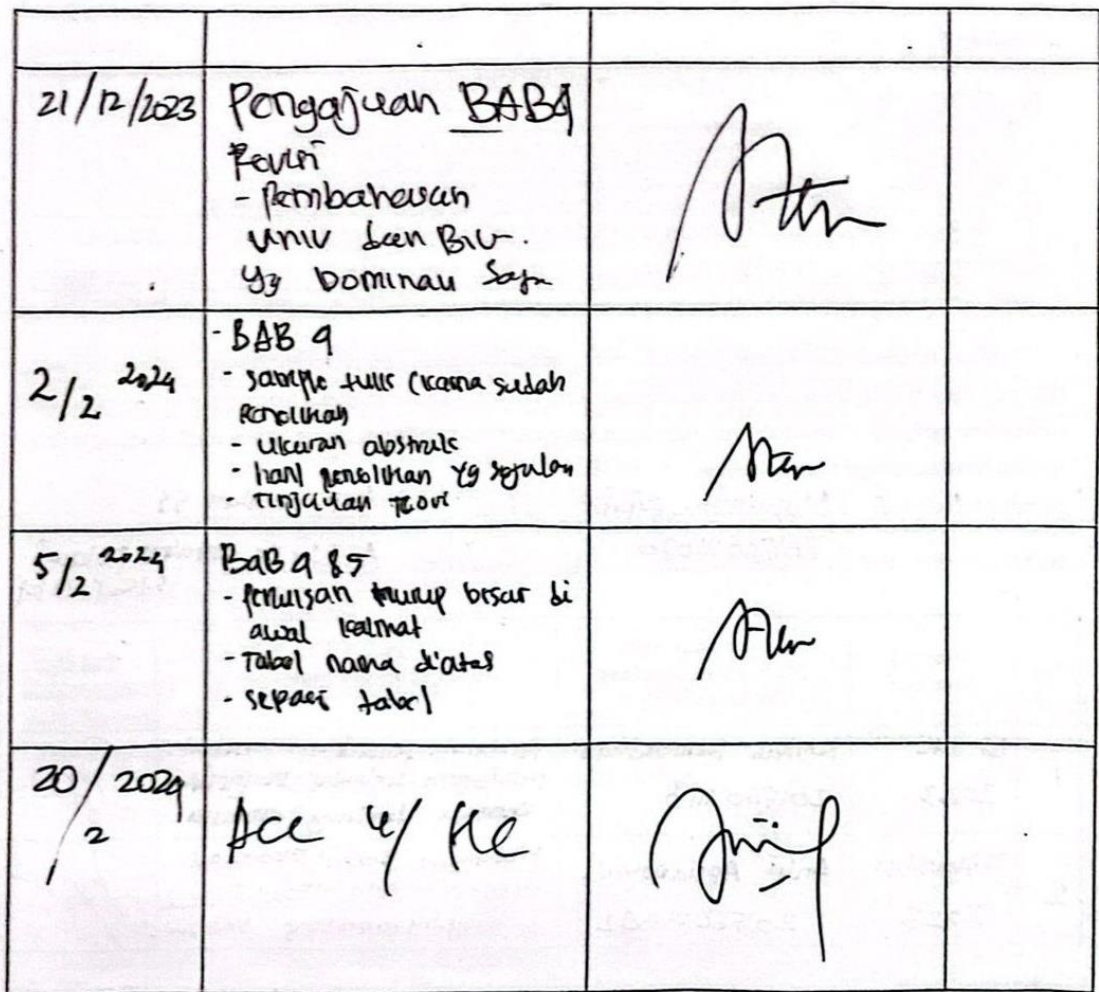 21/12/2023
Pengajuan BAB 4
Revisi
- Pembahasan
univ dan Biv.
yg Dominan Saja
2/2 2024
- BAB 4
- sample tulis (karna sudah
Penelitian
- Ukuran abstrak
- hasil penelitian yg sejalan
- Tinjauan Teori
5/2 2024
BaB 4 & 5
- Penulisan hurup besar di
awal kalimat
- Tabel nama di atas
- sepasi tabel
20/2 2024
Acc